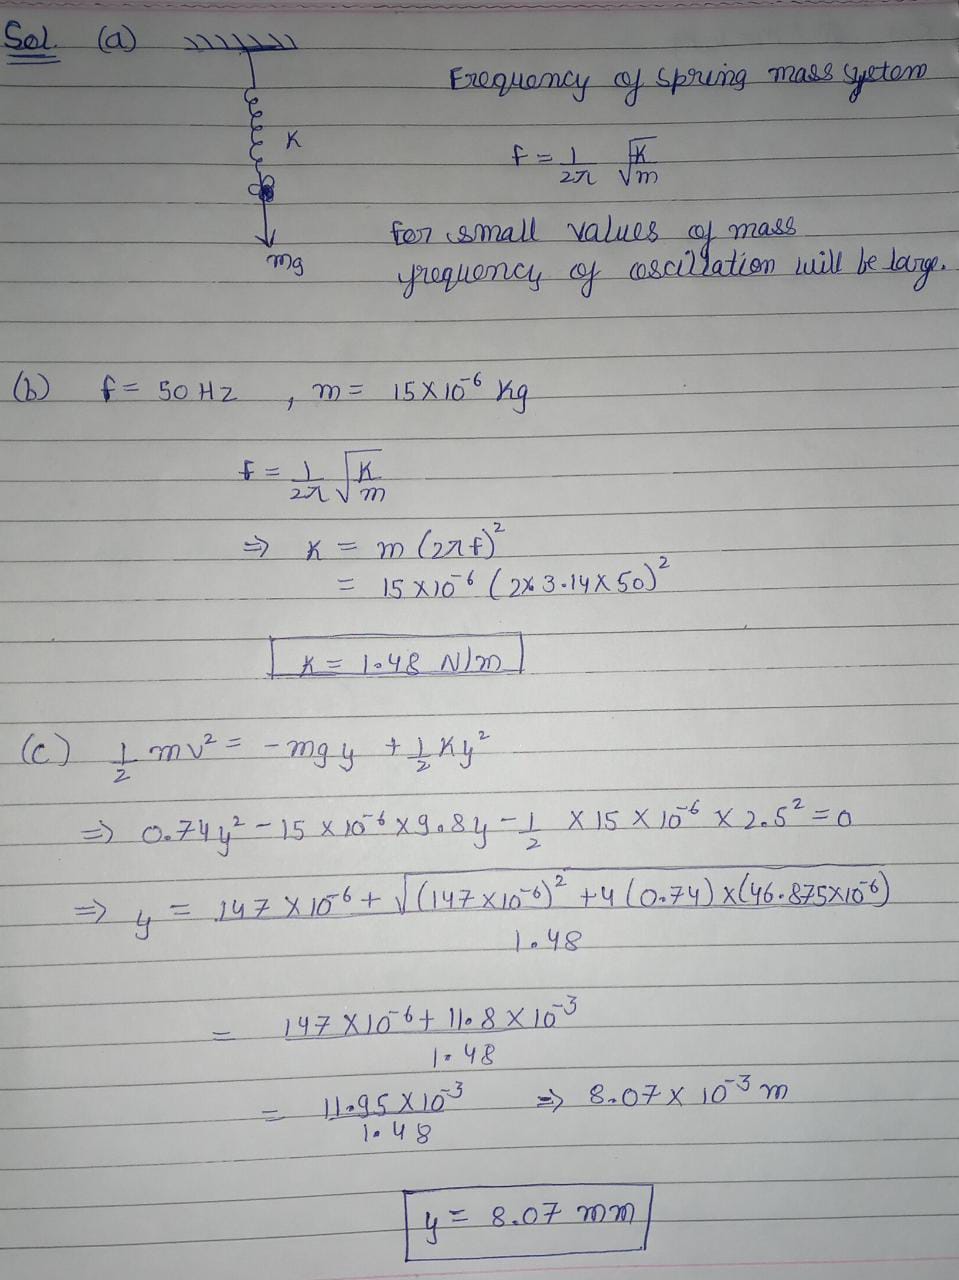 Sol. (a)
K
mg
Frequency of spring mass system
f = 1/2π √(K/m)
for small values of mass
frequency of oscillation will be large.
(b) f = 50 Hz , m = 15 × 10⁻⁶ Kg
f = 1/2π √(K/m)
⇒ K = m (2πf)²
= 15 × 10⁻⁶ (2 × 3.14 × 50)²
K = 1.48 N/m
(c) 1/2 mv² = - mgy + 1/2 Ky²
⇒ 0.74y² - 15 × 10⁻⁶ × 9.8y - 1/2 × 15 × 10⁻⁶ × 2.5² = 0
⇒ y = (147 × 10⁻⁶ + √((147 × 10⁻⁶)² + 4(0.74) × (46.875 × 10⁻⁶))) / 1.48
= (147 × 10⁻⁶ + 11.8 × 10⁻³) / 1.48
= 11.95 × 10⁻³ / 1.48 ⇒ 8.07 × 10⁻³ m
y = 8.07 mm